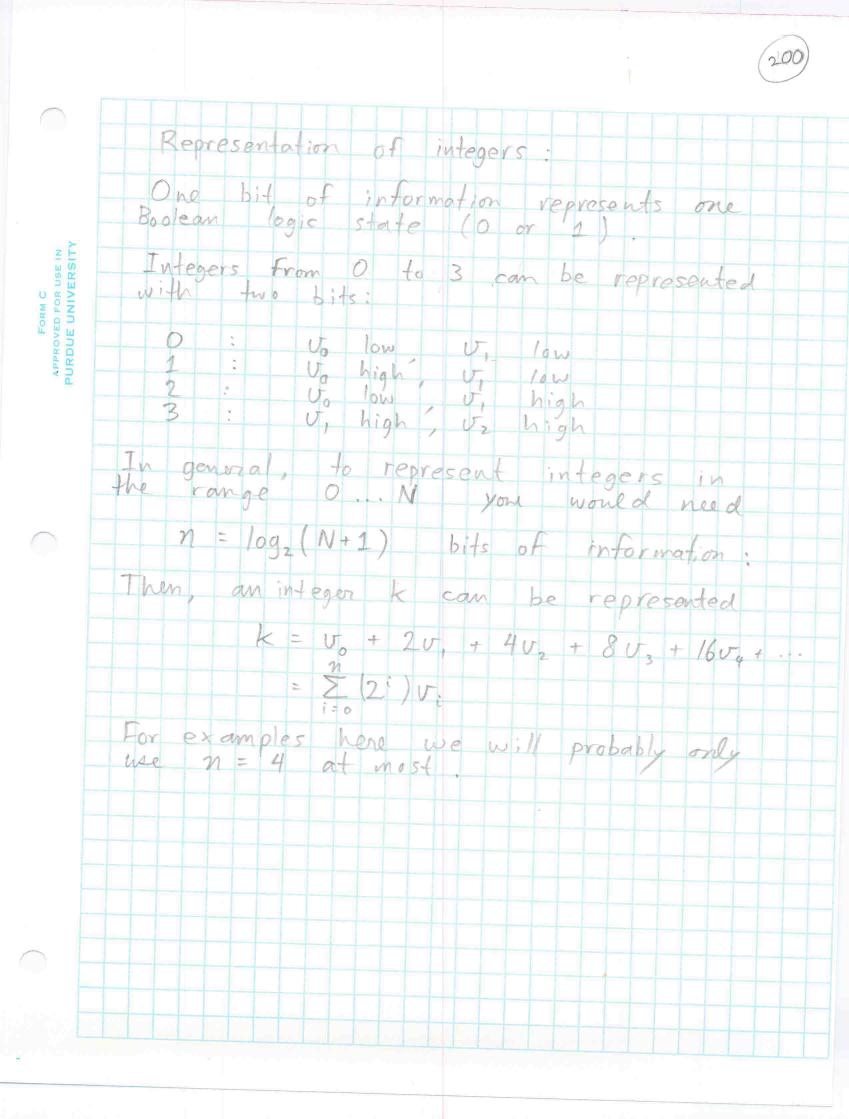 200
FORM C
APPROVED FOR USE IN
PURDUE UNIVERSITY
Representation of integers :
One bit of information represents one
Boolean logic state (0 or 1) .
Integers from 0 to 3 can be represented
with two bits:
0 : v₀ low, v₁ low
1 : v₀ high, v₁ low
2 : v₀ low, v₁ high
3 : v₁ high, v₂ high
In general, to represent integers in
the range 0 ... N you would need
n = log₂(N+1) bits of information :
Then, an integer k can be represented
k = v₀ + 2v₁ + 4v₂ + 8v₃ + 16v₄ + ...
= Σᵢ₌₀ⁿ (2ⁱ) vᵢ
For examples here we will probably only
use n = 4 at most .